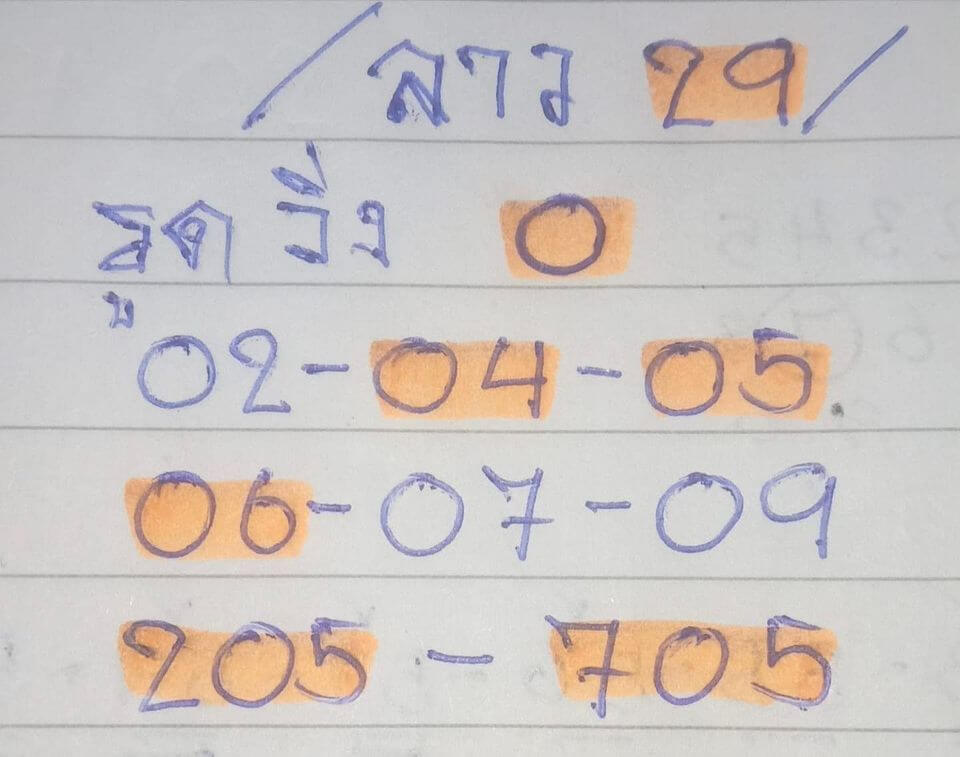 /ลาว 29/
รูด วิ่ง 0
02-04-05
06-07-09
205-705